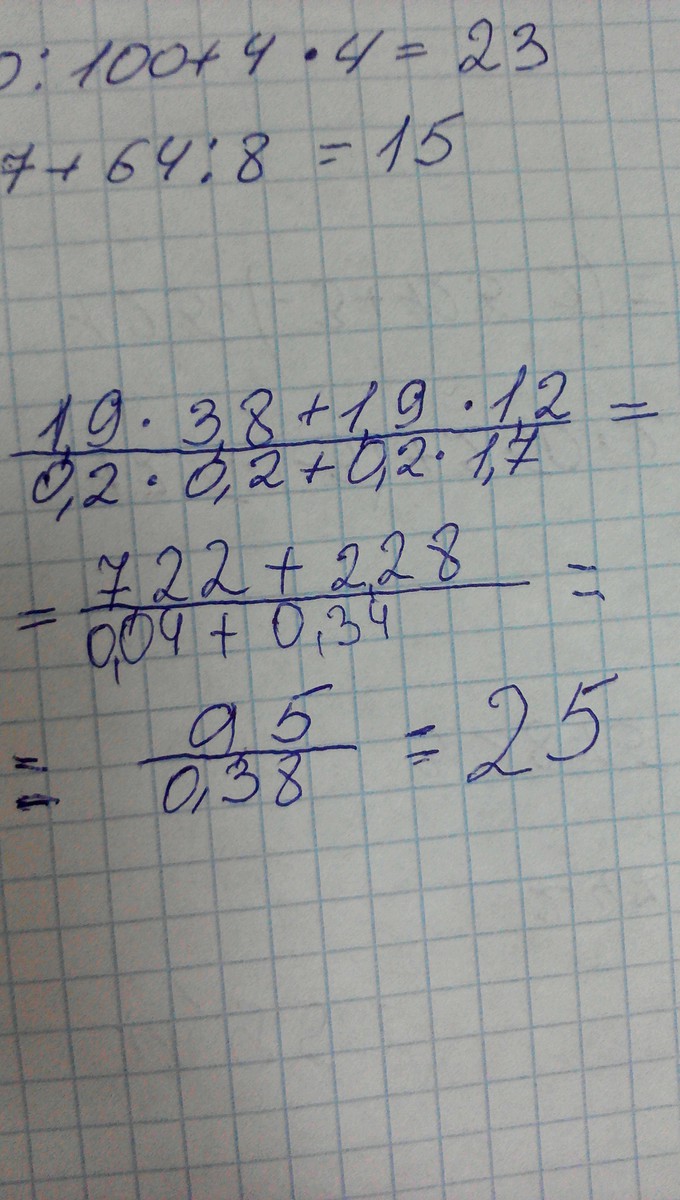 0:100+4·4=23
7+64:8=15
1,9·3,8+1,9·1,2=
0,2·0,2+0,2·1,7
=722+2,28=
0,04+0,34
=95=25
0,38